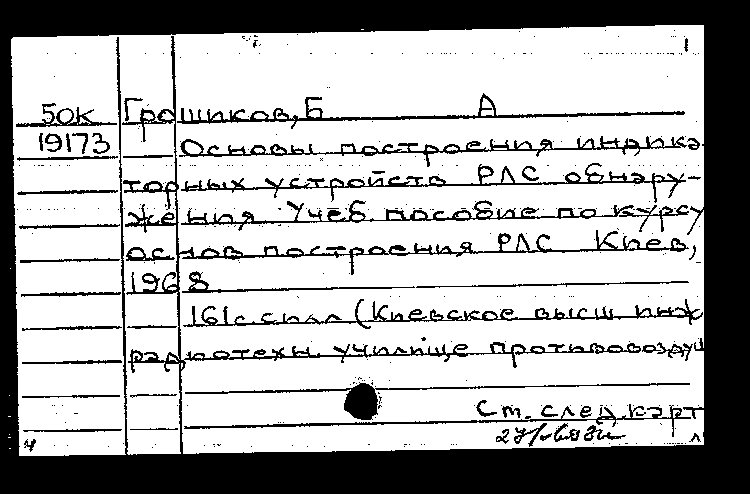 1
50к Грошиков, Б А
19173 Основы построения индика
торных устройств РЛС обнару-
жения Учеб. пособие по курсу
основ построения РЛС Киев,
1968
161с. с илл (Киевское высш. инж
радиотехн. училище противовоздуш
См. след. карт